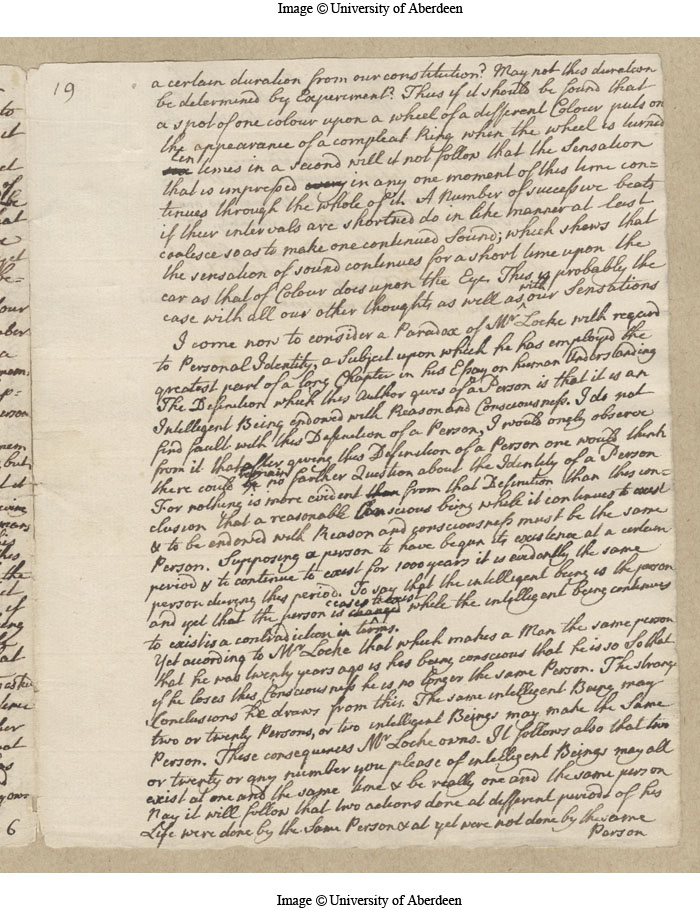 Image © University of Aberdeen
19
a certain duration from our constitution? May not this duration
be determined by Experiment? Thus if it should be found that
a spot of one colour upon a wheel of a different Colour puts on
the appearance of a compleat Ring when the wheel is turned
ten
times in a second will it not follow that the Sensation
that is impressed in any one moment of this time con=
tinues through the whole of it. A Number of successive beats
if their intervals are shortned do in like manner at least
coalesce so as to make one continued Sound; which shews that
the sensation of sound continues for a short time upon the
ear as that of Colour does upon the Eye. This is probably the
case with all our other thoughts as well as with our Sensations
I come now to consider a Paradox of Mr Locke with regard
to Personal Identity, a Subject upon which he has employed the
greatest part of a long Chapter in his Essay on human Understanding
The Definition which this Author gives of a Person is that it is an
Intelligent Being endowed with Reason and Consciousness. I do not
find fault with this Definition of a Person, I would onely observe
from it that after giving this Definition of a Person one would think
there could remain no farther Question about the Identity of a Person
For nothing is more evident from that Definition than this con=
clusion that a reasonable Conscious being while it continues to exist
& to be endowed with Reason and consciousness must be the same
Person. Supposing a person to have begun its existence at a certain
period & to continue to exist for 1000 years it is evidently the same
person during this period. To say that the intelligent being is the person
ceases to exist
and yet that the person is changed while the intelligent being continues
to exist is a contradiction in terms.
Yet acording to Mr Locke that which makes a Man the same person
that he was twenty years ago is his being conscious that he is so So that
if he loses this Consciousness he is no longer the same Person. The strange
Conclusions he draws from this. The same intelligent Being may
two or twenty Persons, or two intelligent Beings may make the Same
Person. These consequences Mr Locke owns. It follows also that two
or twenty or any number you please of intelligent Beings may all
exist at one and the same time & be really one and the same person
Nay it will follow that two actions done at different periods of his
Life were done by the Same Person & at yet were not done by the same
Person
6
Image © University of Aberdeen